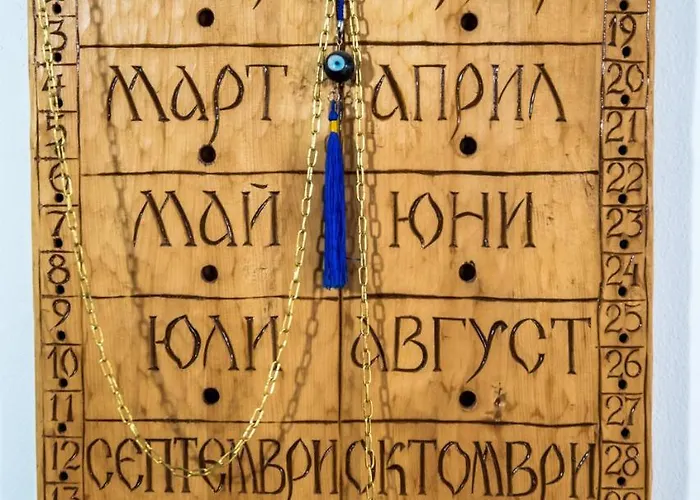 3 19
4 МАРТ АПРИЛ 20
5 21
6 22
7 МАЙ ЮНИ 23
8 24
9 25
10 ЮЛИ АВГУСТ 26
11 27
12 СЕПТЕМВРИ ОКТОМВРИ 28
13